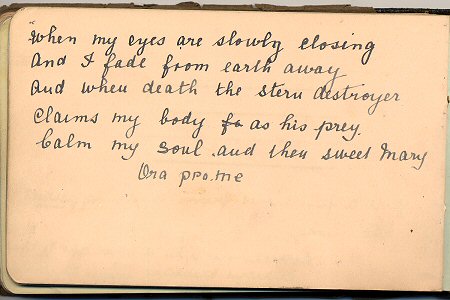 When my eyes are slowly closing
And I fade from earth away
And when death the stern destroyer
Claims my body fo as his prey.
Calm my soul and then sweet Mary
Ora pro.me